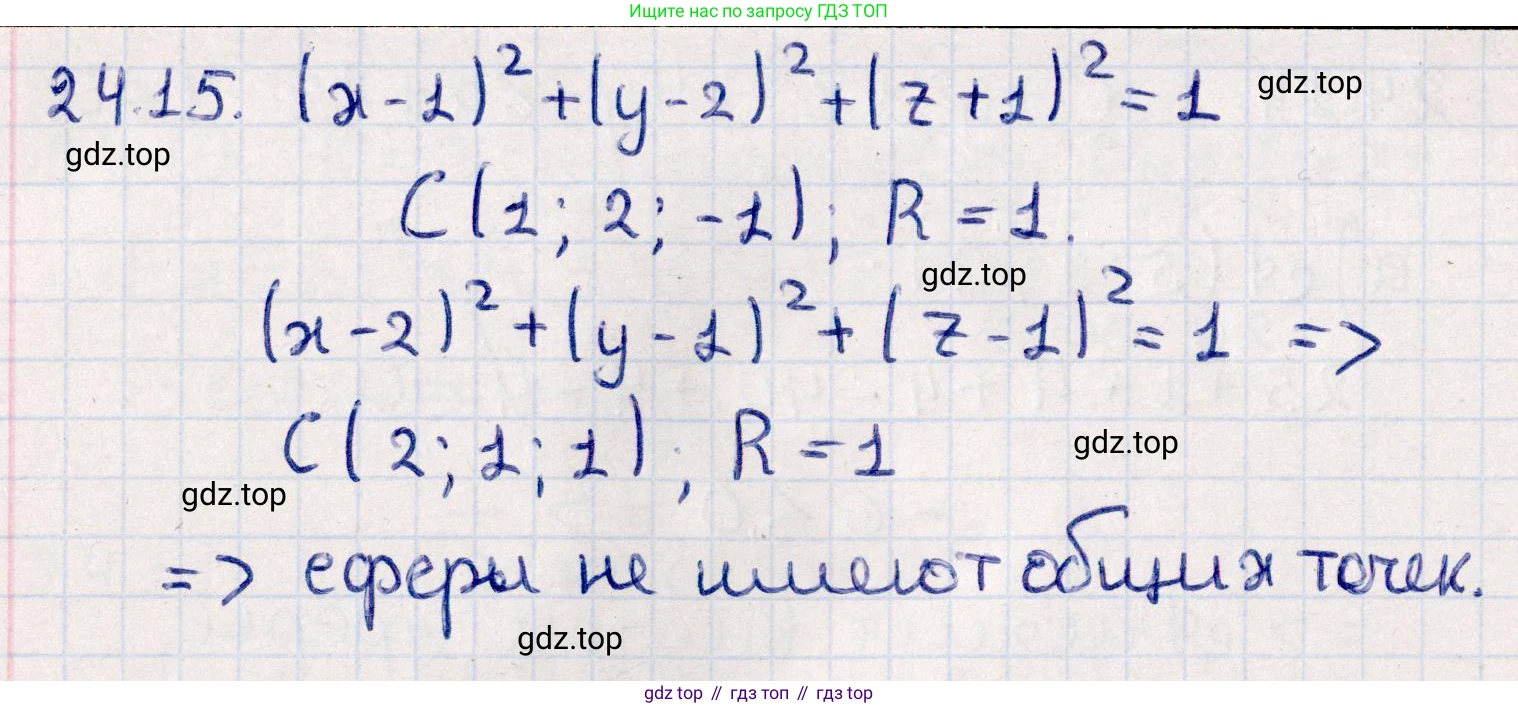 Ищите нас по запросу ГДЗ ТОП
24.15. (x-1)² + (y-2)² + (z+1)² = 1 gdz.top
gdz.top
C(1; 2; -1); R = 1.
gdz.top
(x-2)² + (y-1)² + (z-1)² = 1 =>
C(2; 1; 1); R = 1 gdz.top
gdz.top
=> сферы не имеют общих точек.
gdz.top
gdz top // гдз топ // гдз top